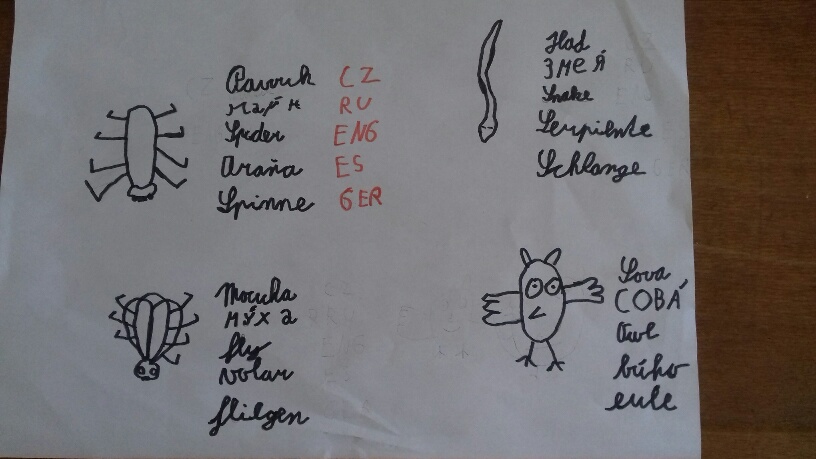 Pavouk CZ
паук RU
Spider ENG
araña ES
Spinne GER
Had
ЗМЕЯ́
Snake
Serpiente
Schlange
Moucha
му́ха
fly
volar
fliegen
Sova
СОВА́
Owl
búho
eule